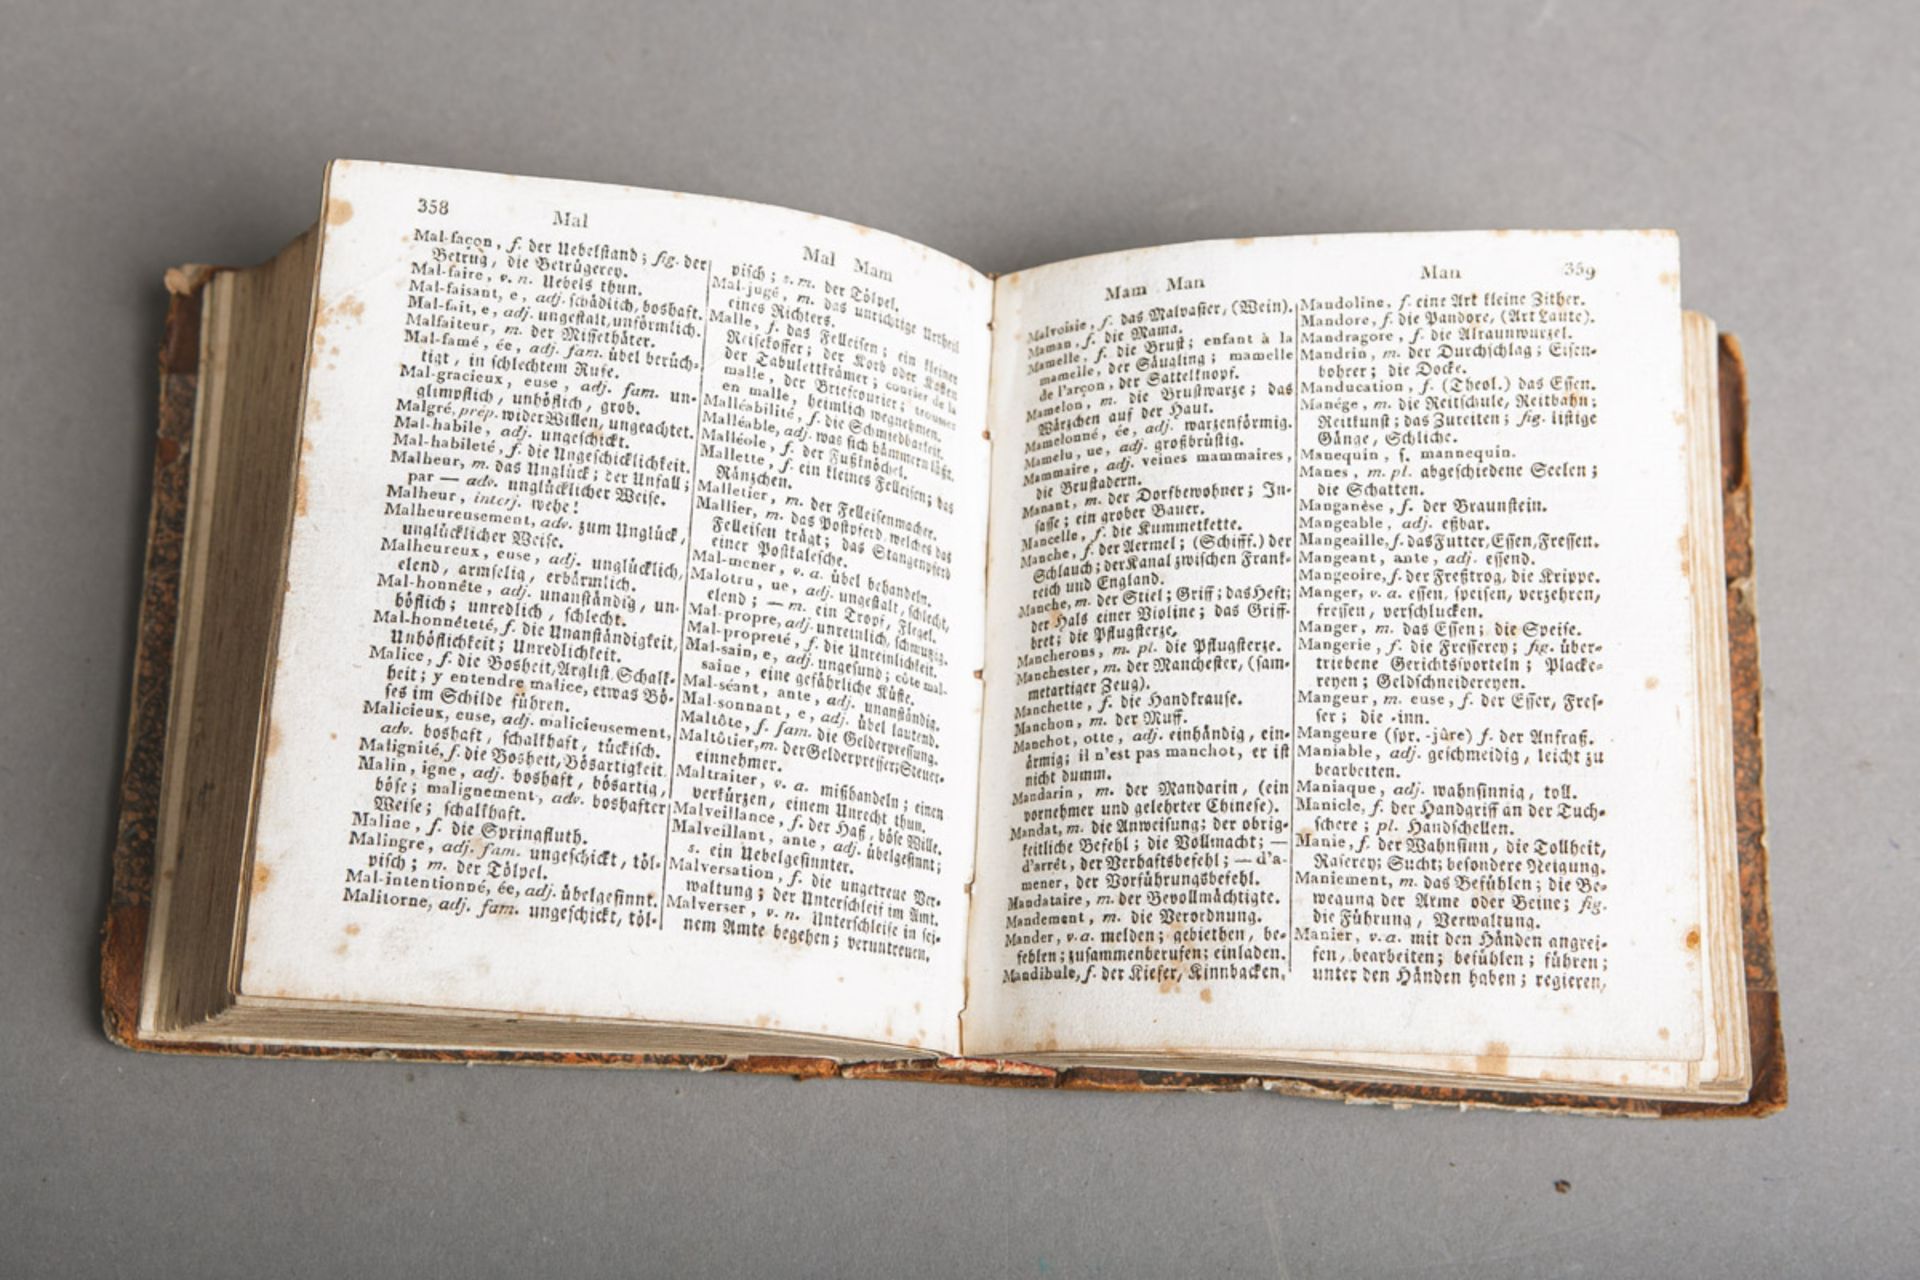 358
Mal
Mal-façon, f. der Uebelstand; fig. der
Betrug, die Betrügerey.
Mal-faire, v. n. Uebels thun.
Mal-faisant, e, adj. schädlich, boshaft.
Mal-fait, e, adj. ungestalt, unförmlich.
Malfaiteur, m. der Missethäter.
Mal-famé, ée, adj. fam. übel berüch-
tigt, in schlechtem Rufe.
Mal-gracieux, euse, adj. fam. un-
glimpflich, unhöflich, grob.
Malgré, prép. wider Willen, ungeachtet.
Mal-habile, adj. ungeschickt.
Mal-habileté, f. die Ungeschicklichkeit.
Malheur, m. das Unglück; der Unfall;
par — adv. unglücklicher Weise.
Malheur, interj. wehe!
Malheureusement, adv. zum Unglück,
unglücklicher Weise.
Malheureux, euse, adj. unglücklich,
elend, armselig, erbärmlich.
Mal-honnête, adj. unanständig, un-
höflich; unredlich, schlecht.
Mal-honnêteté, f. die Unanständigkeit,
Unhöflichkeit; Unredlichkeit.
Malice, f. die Bosheit, Arglist, Schalk-
heit; y entendre malice, etwas Bö-
ses im Schilde führen.
Malicieux, euse, adj. malicieusement,
adv. boshaft, schalkhaft, tückisch.
Malignité, f. die Bosheit, Bösartigkeit.
Malin, igne, adj. boshaft, bösartig,
böse; malignement, adv. boshafter
Weise; schalkhaft.
Maline, f. die Springfluth.
Malingre, adj. fam. ungeschickt, töl-
pisch; m. der Tölpel.
Mal-intentionné, ée, adj. übelgesinnt.
Malitorne, adj. fam. ungeschickt, töl-
Mal Mam
pisch; s. m. der Tölpel.
Mal-jugé, m. das unrichtige Urtheil
eines Richters.
Malle, f. das Felleisen; ein kleiner
Reisekoffer; der Korb oder Kasten
der Tabulettkrämer; courier de la
malle, der Briefcourier; trousser
en malle, heimlich wegnehmen.
Malléabilité, f. die Schmiedbarkeit.
Malléable, adj. was sich hämmern läßt.
Malléole, f. der Fußknöchel.
Mallette, f. ein kleines Felleisen; das
Ränzchen.
Malletier, m. der Felleisenmacher.
Mallier, m. das Postpferd, welches das
Felleisen trägt; das Stangenpferd
einer Postkalesche.
Mal-mener, v. a. übel behandeln.
Malotru, ue, adj. ungestalt, schlecht,
elend; — m. ein Tropf, Flegel.
Mal-propre, adj. unreinlich, schmutzig.
Mal-propreté, f. die Unreinlichkeit.
Mal-sain, e, adj. ungesund; côte mal-
saine, eine gefährliche Küste.
Mal-séant, ante, adj. unanständig.
Mal-sonnant, e, adj. übel lautend.
Maltôte, f. fam. die Gelderpressung.
Maltôtier, m. der Gelderpresser; Steuer-
einnehmer.
Maltraiter, v. a. mißhandeln; einen
verkürzen, einem Unrecht thun.
Malveillance, f. der Haß, böse Wille.
Malveillant, ante, adj. übelgesinnt;
s. ein Uebelgesinnter.
Malversation, f. die ungetreue Ver-
waltung; der Unterschleif im Amt.
Malverser, v. n. Unterschleife in sei-
nem Amte begehen; veruntreuen.
Mam Man
Malvoisie, f. das Malvasier, (Wein).
Maman, f. die Mama.
Mamelle, f. die Brust; enfant à la
mamelle, der Säugling; mamelle
de l'arçon, der Sattelknopf.
Mamelon, m. die Brustwarze; das
Wärzchen auf der Haut.
Mamelonné, ée, adj. warzenförmig.
Mamelu, ue, adj. großbrüstig.
Mammaire, adj. veines mammaires,
die Brustadern.
Manant, m. der Dorfbewohner; In-
sasse; ein grober Bauer.
Mancelle, f. die Kummetkette.
Manche, f. der Aermel; (Schiff.) der
Schlauch; der Kanal zwischen Frank-
reich und England.
Manche, m. der Stiel; Griff; das Heft;
der Hals einer Violine; das Griff-
bret; die Pflugsterze,
Mancherons, m. pl. die Pflugsterze.
Manchester, m. der Manchester, (sam-
metartiger Zeug).
Manchette, f. die Handkrause.
Manchon, m. der Muff.
Manchot, otte, adj. einhändig, ein-
ärmig; il n'est pas manchot, er ist
nicht dumm.
Mandarin, m. der Mandarin, (ein
vornehmer und gelehrter Chinese).
Mandat, m. die Anweisung; der obrig-
keitliche Befehl; die Vollmacht; —
d'arrêt, der Verhaftsbefehl; — d'a-
mener, der Vorführungsbefehl.
Mandataire, m. der Bevollmächtigte.
Mandement, m. die Verordnung.
Mander, v. a. melden; gebiethen, be-
fehlen; zusammenberufen; einladen.
Mandibule, f. der Kiefer, Kinnbacken.
Man
359
Mandoline, f. eine Art kleine Zither.
Mandore, f. die Pandore, (Art Laute).
Mandragore, f. die Alraunwurzel.
Mandrin, m. der Durchschlag; Eisen-
bohrer; die Docke.
Manducation, f. (Theol.) das Essen.
Manége, m. die Reitschule, Reitbahn;
Reitkunst; das Zureiten; fig. listige
Gänge, Schliche.
Manequin, f. mannequin.
Manes, m. pl. abgeschiedene Seelen;
die Schatten.
Manganèse, f. der Braunstein.
Mangeable, adj. eßbar.
Mangeaille, f. das Futter, Essen, Fressen.
Mangeant, ante, adj. essend.
Mangeoire, f. der Freßtrog, die Krippe.
Manger, v. a. essen, speisen, verzehren,
fressen, verschlucken.
Manger, m. das Essen; die Speise.
Mangerie, f. die Fresserey; fig. über-
triebene Gerichtssporteln; Placke-
reyen; Geldschneidereyen.
Mangeur, m. euse, f. der Esser, Fres-
ser; die -inn.
Mangeure (spr. -jûre) f. der Anfraß.
Maniable, adj. geschmeidig, leicht zu
bearbeiten.
Maniaque, adj. wahnsinnig, toll.
Manicle, f. der Handgriff an der Tuch-
schere; pl. Handschellen.
Manie, f. der Wahnsinn, die Tollheit,
Raserey; Sucht; besondere Neigung.
Maniement, m. das Befühlen; die Be-
wegung der Arme oder Beine; fig.
die Führung, Verwaltung.
Manier, v. a. mit den Händen angrei-
fen, bearbeiten; befühlen; führen;
unter den Händen haben; regieren,